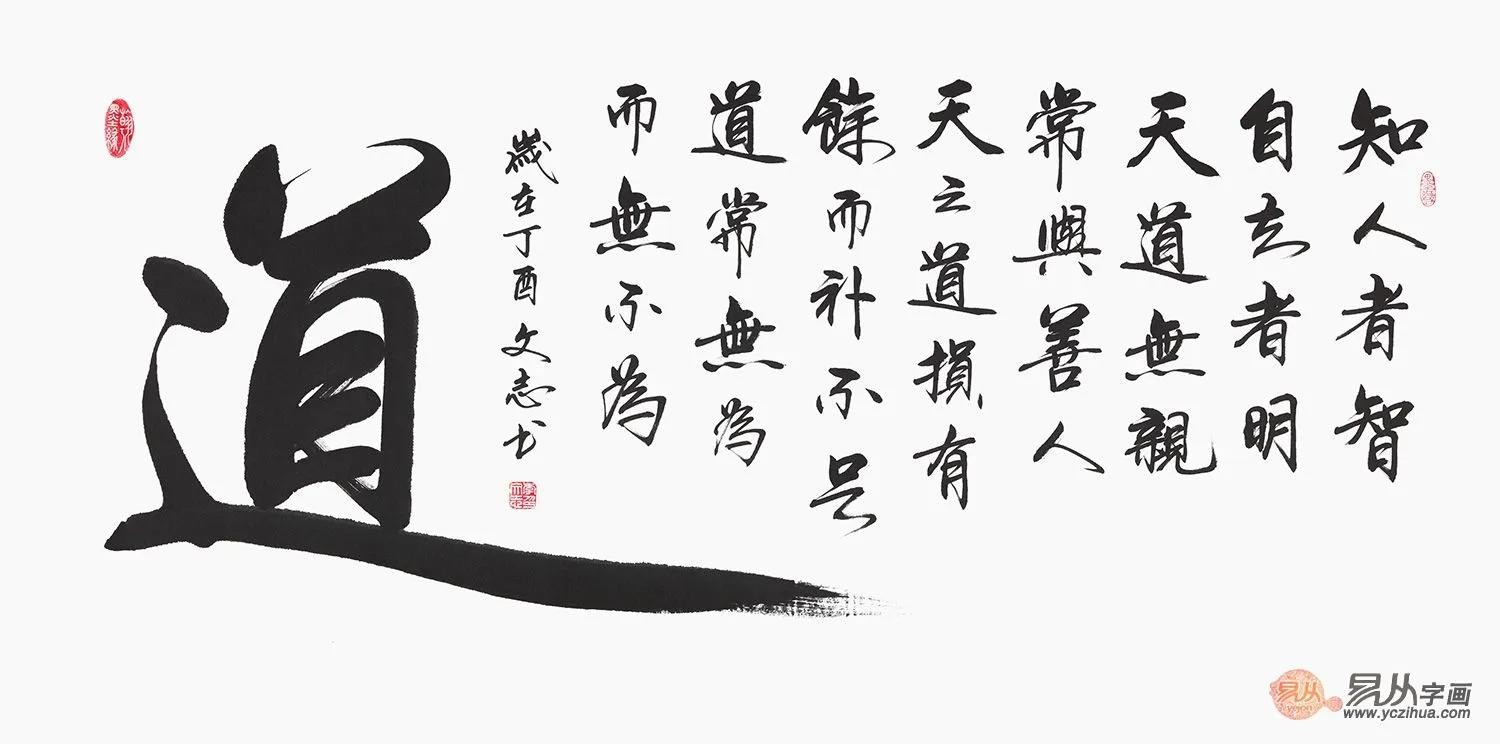 知人者智
自知者明
天道無親
常與善人
天之道損有
餘而补不足
道常無為
而無不為
歲在丁酉文志书
道
易从
易从字画
www.yczihua.com